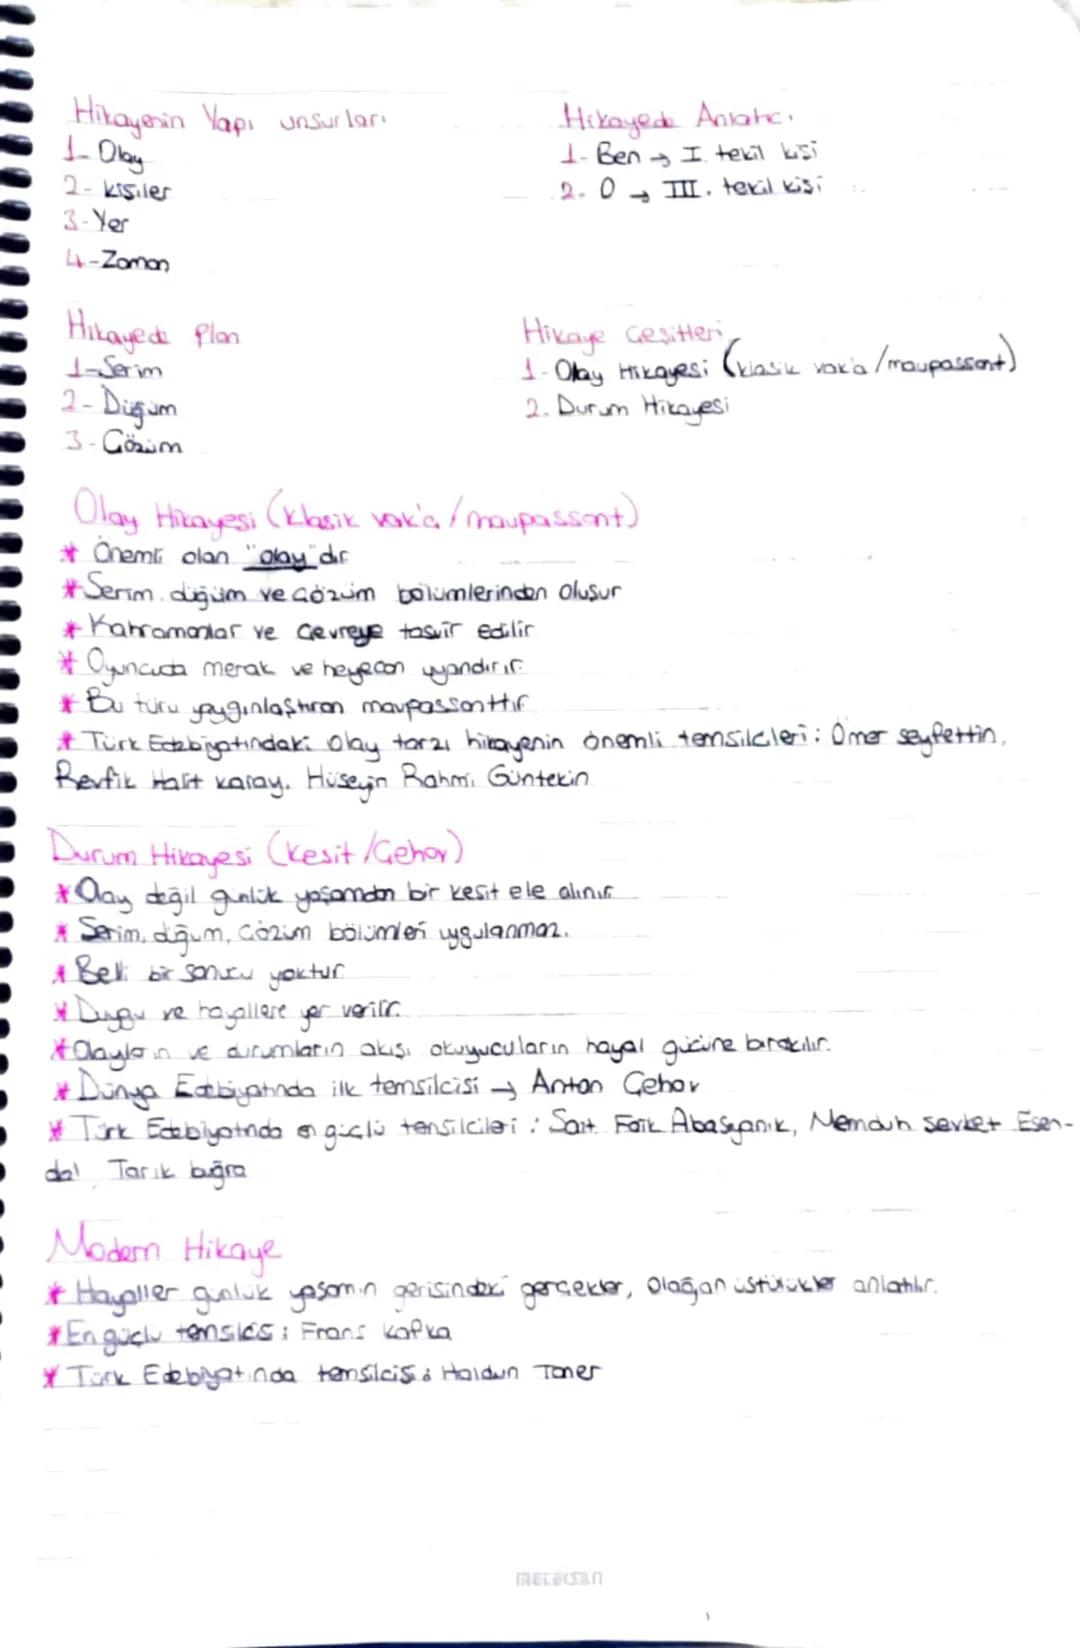 Hikayenin Yapı unsurları
1- Olay
2- kişiler
3- Yer
4- Zaman
Hikayede Anlatıcı
1- Ben → I. tekil kişi
2. O → III. tekil kişi
Hikayede Plan
1- Serim
2- Düğüm
3- Çözüm
Hikaye Çeşitleri
1- Olay Hikayesi (klasik vak'a /maupassant)
2. Durum Hikayesi
Olay Hikayesi (klasik vak'a / maupassant)
* Önemli olan "olay"dır
* Serim. düğüm ve çözüm bölümlerinden oluşur
* Kahramanlar ve çevreye tasvir edilir
* Oyuncuda merak ve heyecan uyandırır.
* Bu türü yaygınlaştıran maupassanttır
* Türk Edebiyatındaki Olay tarzı hikayenin önemli temsilcileri: Ömer seyfettin,
Revfik Halit karay. Hüseyin Rahmi Güntekin
Durum Hikayesi (Kesit /Çehov)
* Olay değil günlük yaşamdan bir kesit ele alınır
* Serim, düğüm, Çözüm bölümleri uygulanmaz.
* Belli bir sonucu yoktur
* Duygu ve hayallere yer verilir.
* Olayların ve durumların akışı okuyucuların hayal gücüne bırakılır.
* Dünya Edebiyatında ilk temsilcisi → Anton Çehov
* Türk Edebiyatında en güçlü temsilcileri : Sait Faik Abasıyanık, Memduh Şevket Esen-
dal Tarık buğra
Modern Hikaye
* Hayaller günlük yaşamın gerisindeki gerçekler, Olağanüstülükler anlatılır.
* En güçlü temsilcisi : Frans kafka
* Türk Edebiyatında temsilcisi : Haldun Taner